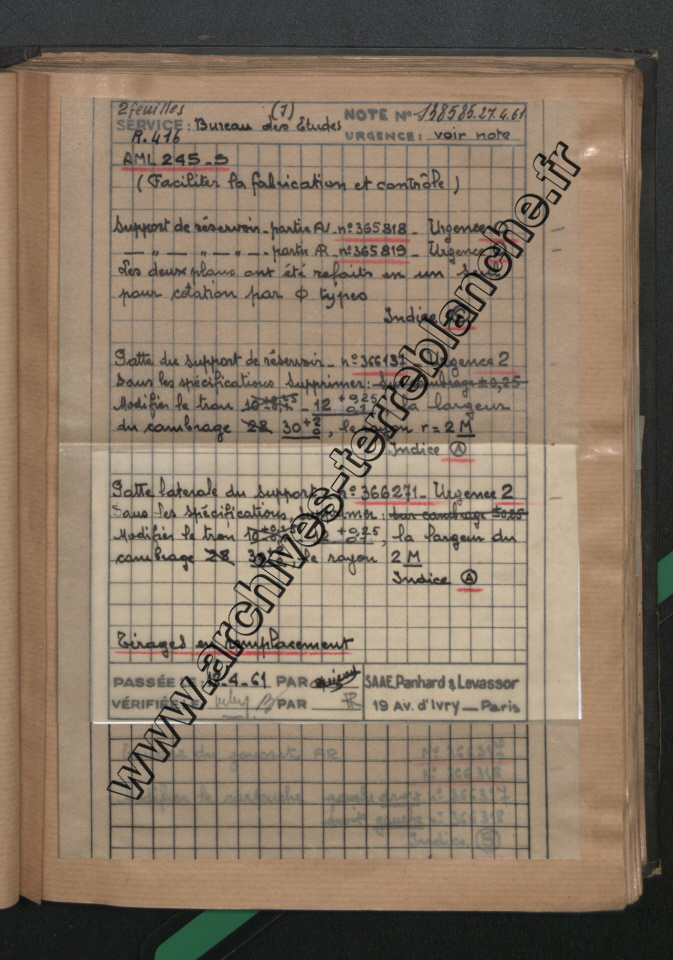 2 feuilles (1) NOTE N° 138585.27.4.61
SERVICE: Bureau des Etudes URGENCE: voir note
R.416
AML 245-S
(Faciliter la fabrication et contrôle)
Support de réservoir - partie AV n° 365818 - Urgence
— „ — „ — „ — partie AR n° 365819 - Urgence
Les deux plans ont été refaits en un
pour cotation par Φ types
Indice
Patte du support de réservoir - n° 366137 Urgence 2
Sous les spécifications Supprimer: ±0,25
Modifier le trou 12 +0,25 la largeur
du cambrage 28 30 +2 0, le rayon r = 2 M
Indice A
Patte laterale du support n° 366271 - Urgence 2
Sous les spécifications : sur cambrage ±0,25
Modifier le trou +0,25, la largeur du
cambrage 28 le rayon 2 M
Indice A
Tirages en remplacement
PASSÉE 4-61 PAR SAAE, Panhard & Levassor
VÉRIFIÉE PAR 19 Av. d'Ivry — Paris
du AR
gauche
Indice
www.archives-terreblanche.fr